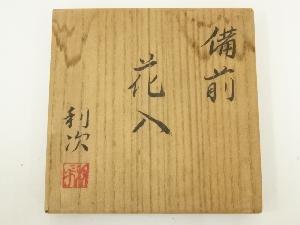 備前
花入
利次